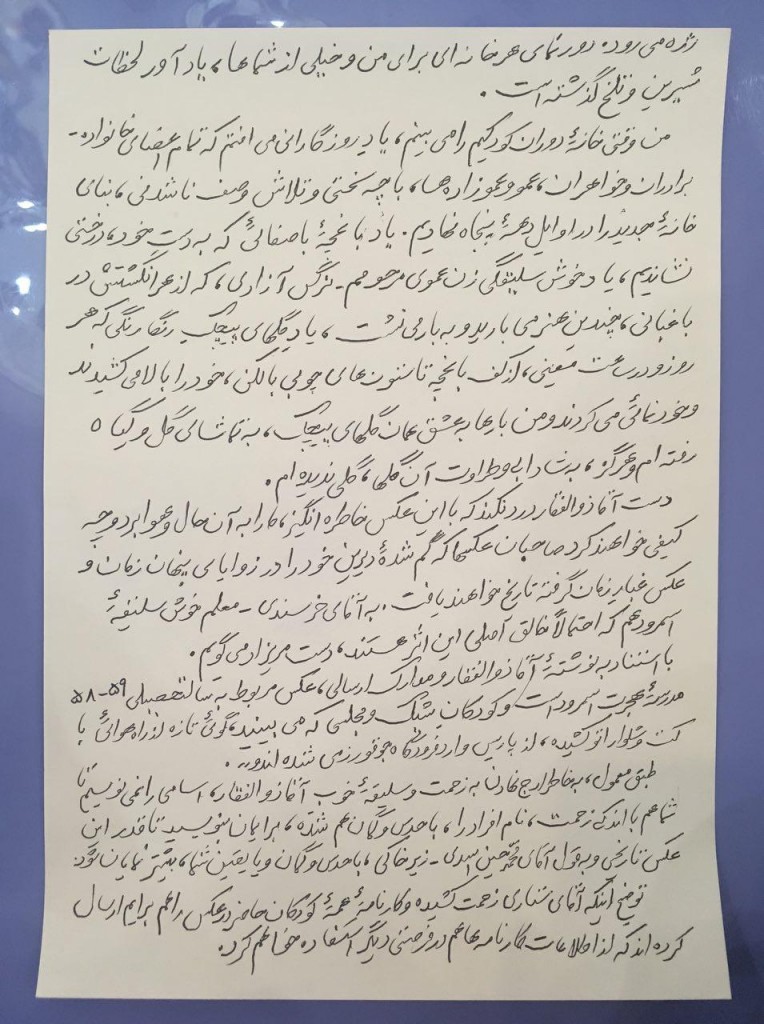 رژه می رود. دورنمای هر خانه ای برای من و خیلی از شماها، یادآور لحظات
شیرین و تلخ گذشته است.
من وقتی خانهٔ دوران کودکیم را می بینم، یاد روزگارانی می افتم که تمام اعضای خانواده-
برادران و خواهران، عمو و عموزاده ها، با چه سختی و تلاش وصف ناشدنی، بنای
خانهٔ جدید را در اوایل دههٔ پنجاه نهادیم. یاد باغچهٔ باصفائی که به دست خود، درختی
نشاندیم، یاد خوش سلیقگی زن عموی مرحومم - نرگس آزادی، که از هر انگشتش در
باغبانی، چندین هنر می بارید و به بار می نشست، یاد گلهای پیچک رنگارنگی که هر
روز و در ساعت معینی، از کف باغچه تا ستون های چوبی بالکن، خود را بالا می کشیدند
و خودنمائی می کردند و من بارها به عشق همان گلهای پیچک، به تماشای گل و گیاه
رفته ام و هرگز، به شادابی و طراوت آن گلها، گلی ندیده ام.
دست آقا ذوالفقار درد نکند که با این عکس خاطره انگیز، ما را به آن حال و هوا برد و چه
کیفی خواهند کرد صاحبان عکسها که گم شدهٔ دیرین خود را در زوایای پنهان زمان و
عکس غبار زمان گرفتهٔ تاریخ خواهند یافت. به آقای خرسندی - معلم خوش سلیقهٔ
اسمرود هم که احتمالاً خالق اصلی این اثر هستند، دست مریزاد می گویم.
با استناد به نوشتهٔ آقا ذوالفقار و مدارک ارسالی، عکس مربوط به سال تحصیلی ۵۹-۵۸
مدرسهٔ هجرت اسمرود است و کودکان شیک و مجلسی که می بینید، گوئی تازه از راه هوائی با
کت و شلوار اتو کشیده، از پاریس وارد فرودگاه شده اندو...
طبق معمول، به خاطر ارج نهادن به زحمت و سلیقهٔ خوب آقا ذوالفقار، اسامی را نمی نویسم تا
شما هم با اندکی زحمت، نام افراد را، با حدس و گمان هم شده، برایمان بنویسید تا قدر این
عکس تاریخی و به قول آقای محمد حسین اسدی - زیرخاکی، با حدس و گمان و یا یقین شما، بیشتر نمایان شود
توضیح اینکه آقای ستاری زحمت کشیده و کارنامهٔ همهٔ کودکان حاضر در عکس را هم برایم ارسال
کرده اند که از اطلاعات کارنامه ها هم در فرصتی دیگر استفاده خواهم کرد.